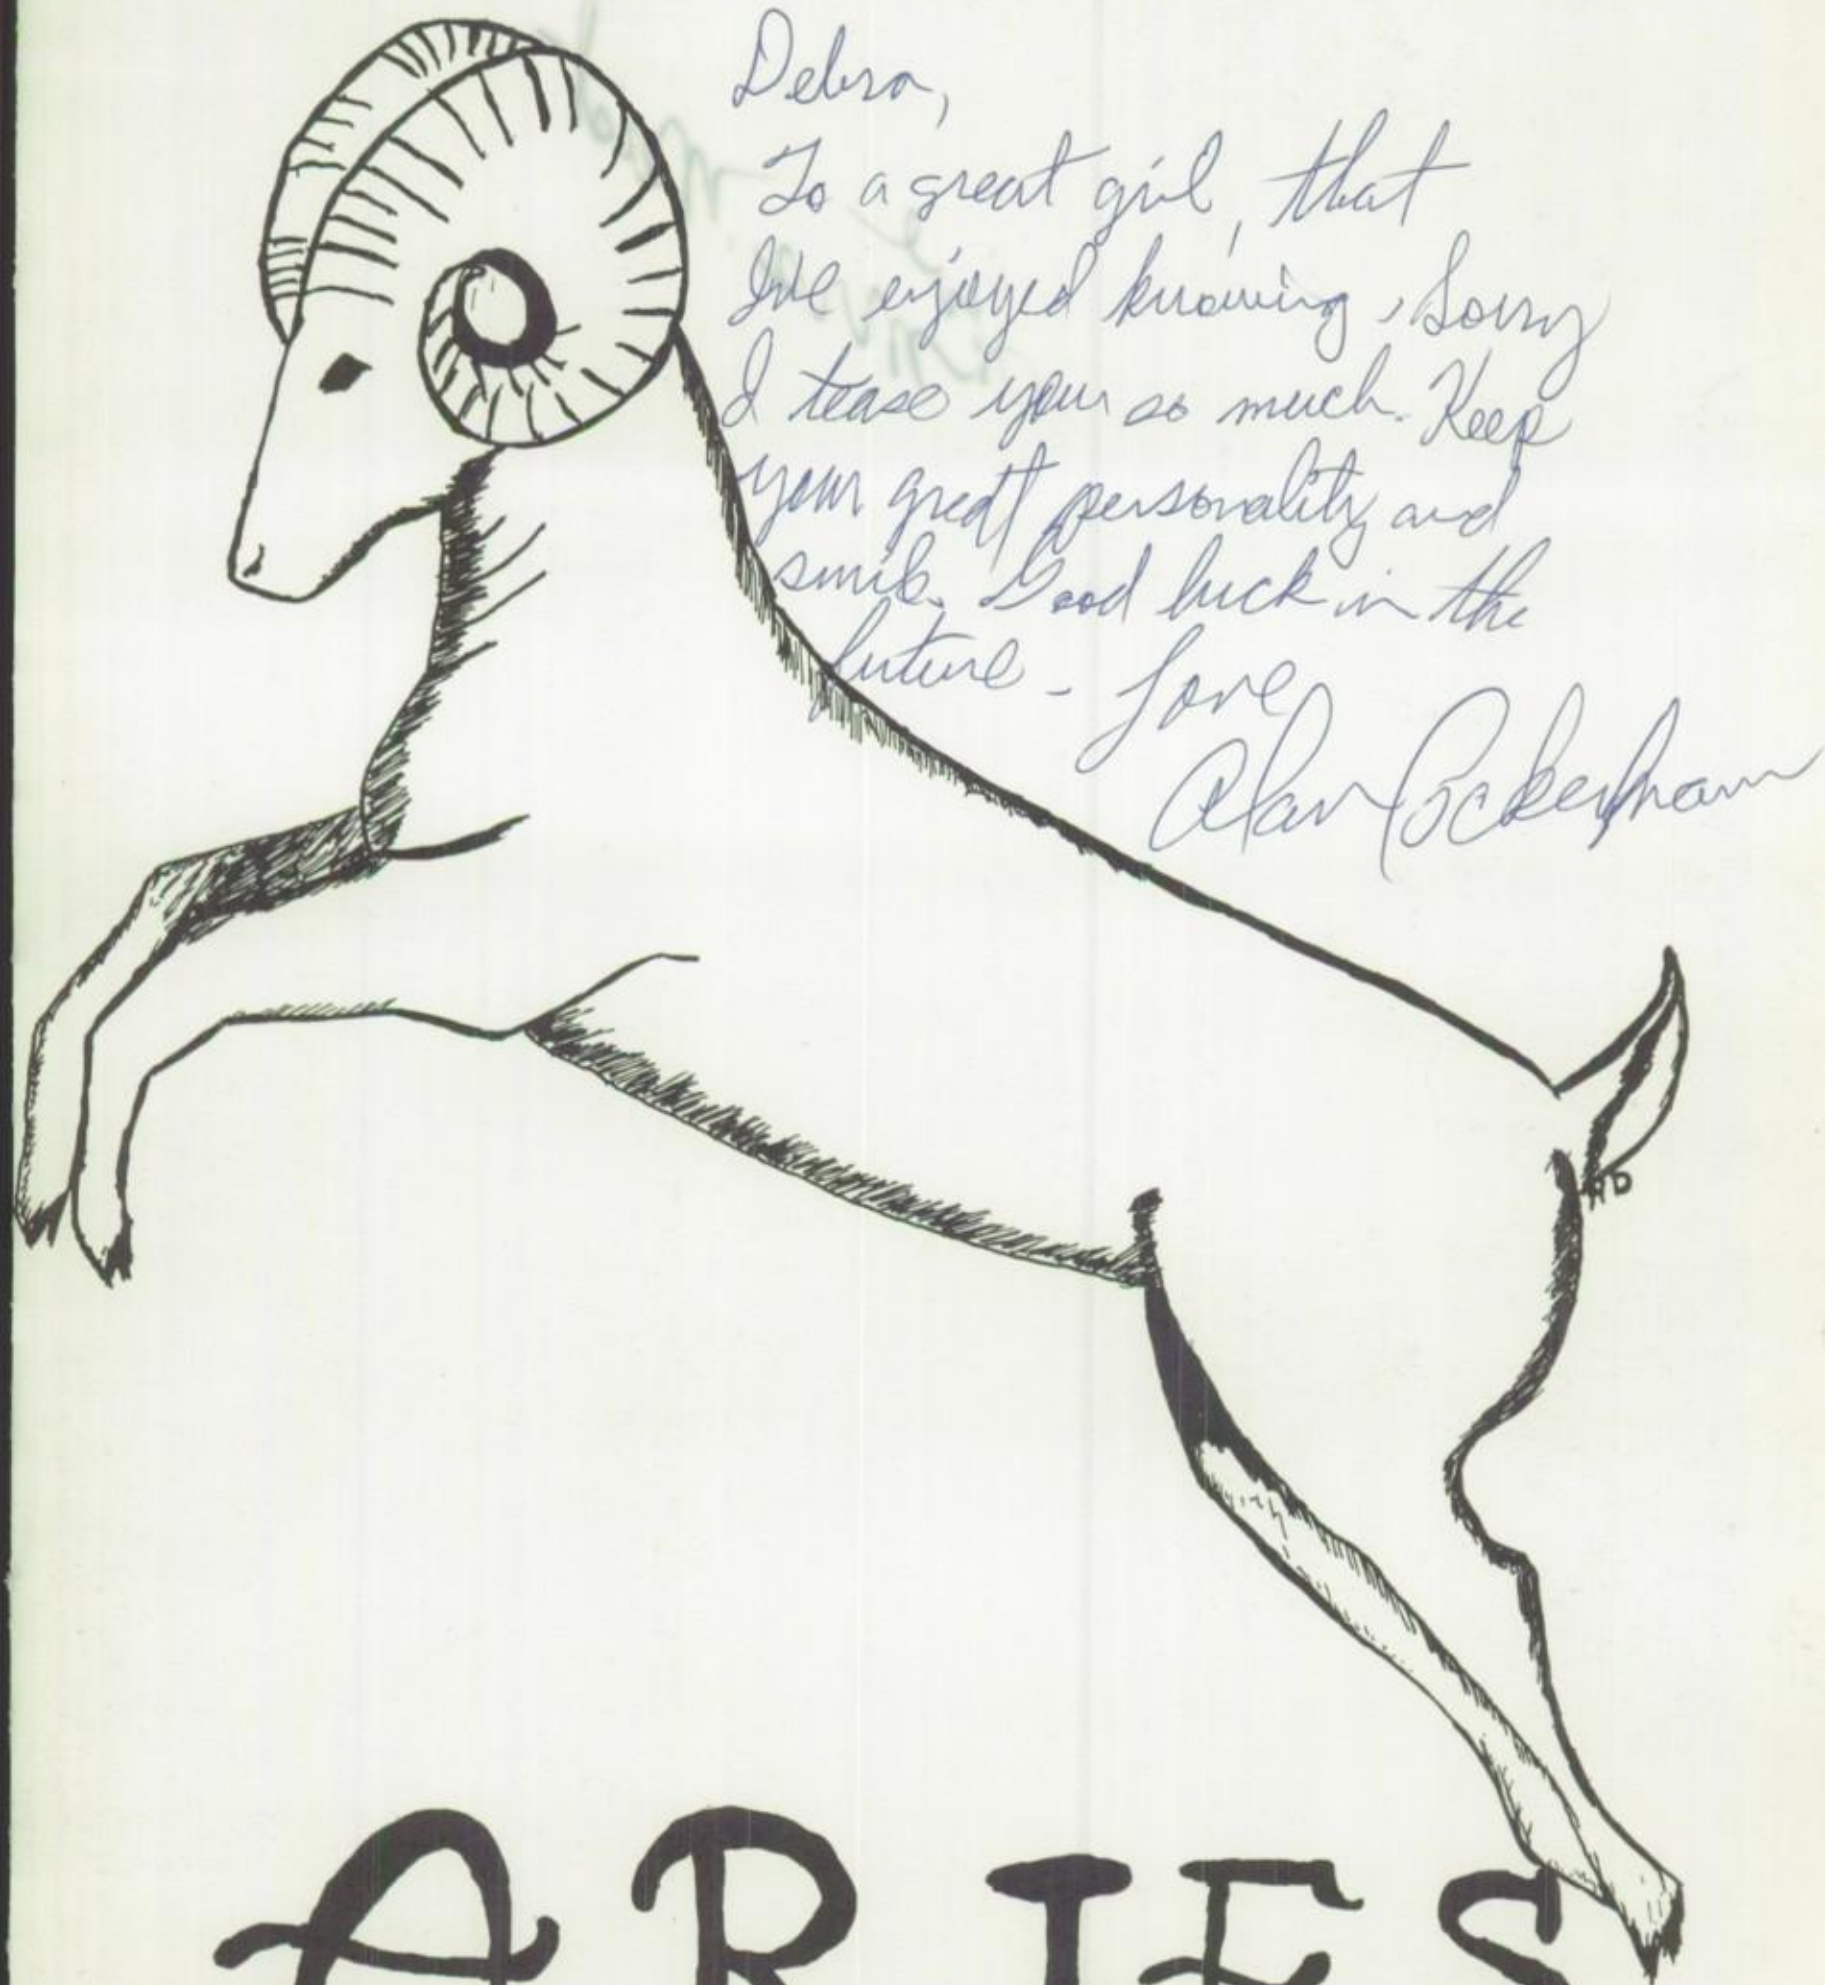 Debra,
To a great girl, that
I've enjoyed knowing, Sorry
I tease you so much. Keep
your great personality and
smile. Good luck in the
future - Love,
Alan
HD
ARIES